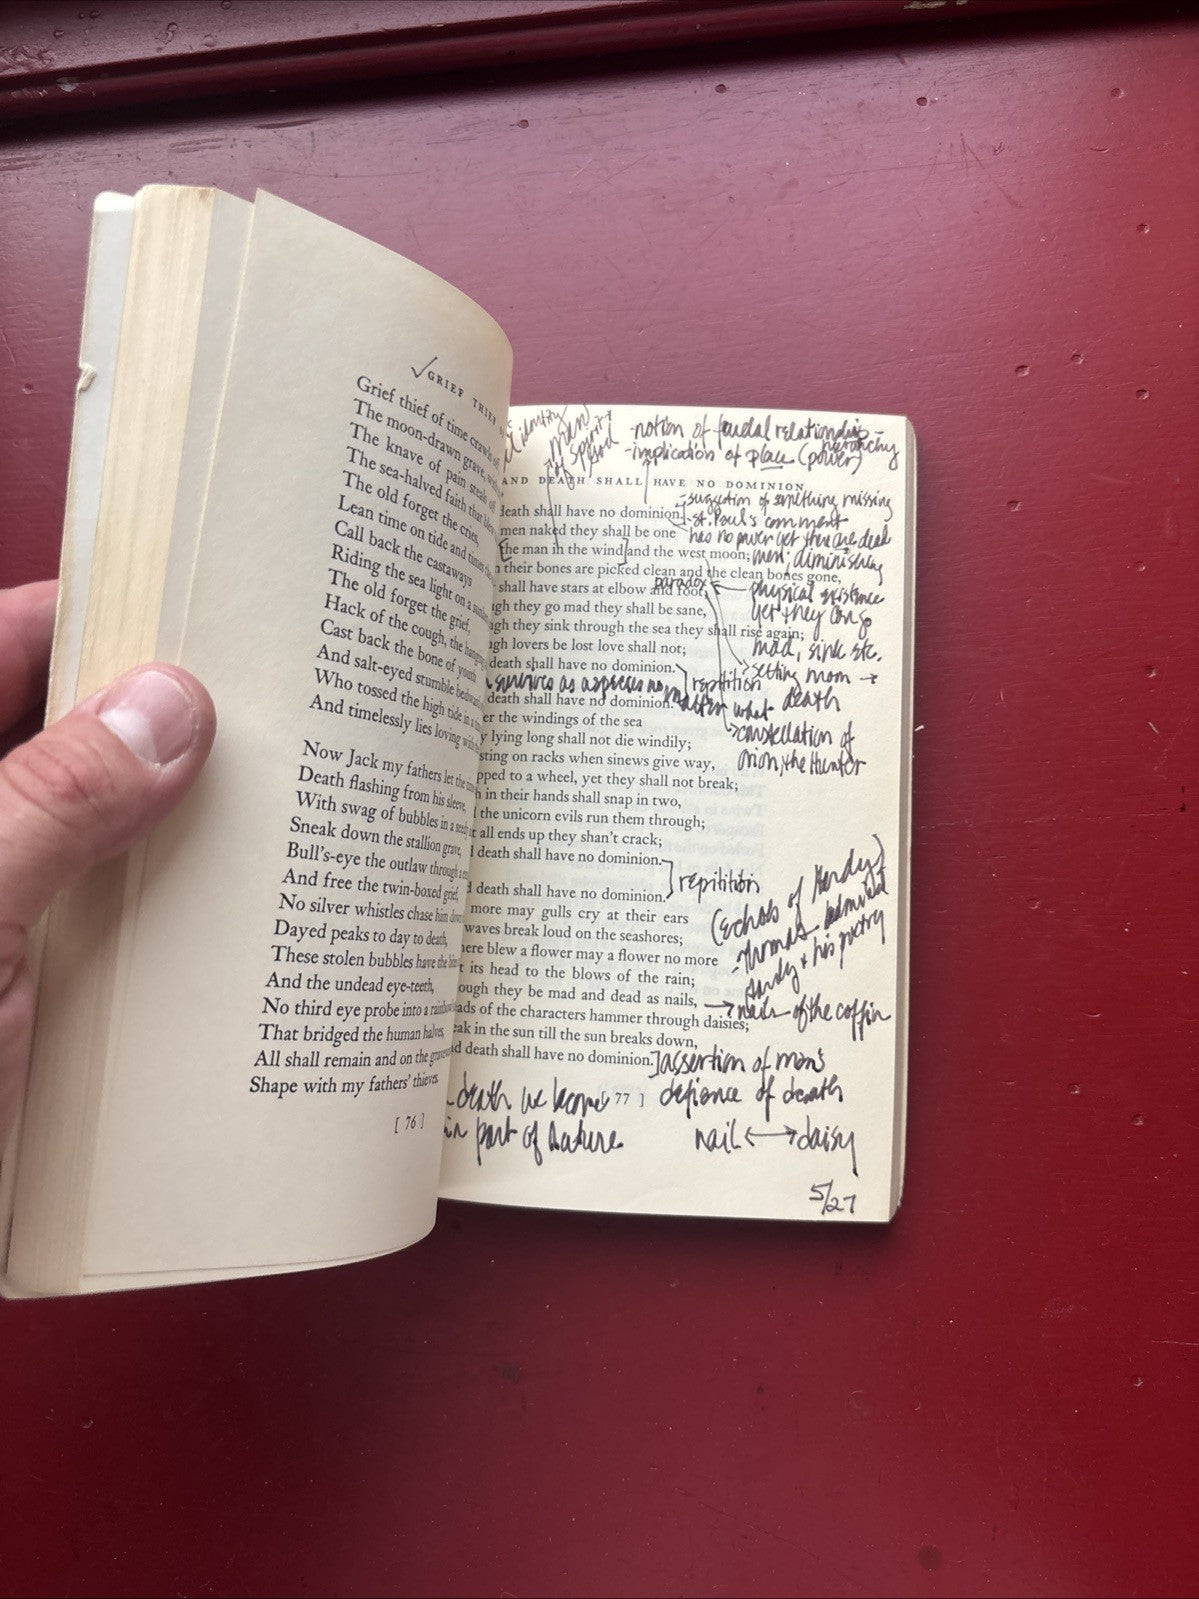 ✓GRIEF THIEF
Grief thief of time crawls off,
The moon-drawn grave, with
The knave of pain steals off
The sea-halved faith that blew
The old forget the cries,
Lean time on tide and times the
Call back the castaways
Riding the sea light on a sunken
The old forget the grief,
Hack of the cough, the hanging
Cast back the bone of youth
And salt-eyed stumble bedward
Who tossed the high tide in a
And timelessly lies loving with the
Now Jack my fathers let the
Death flashing from his sleeve,
With swag of bubbles in a seedy
Sneak down the stallion grave,
Bull's-eye the outlaw through a
And free the twin-boxed grief,
No silver whistles chase him down
Dayed peaks to day to death,
These stolen bubbles have the bites
And the undead eye-teeth,
No third eye probe into a rainbow
That bridged the human halves,
All shall remain and on the graveward
Shape with my fathers' thieves
[ 76 ]
identity
man
of spirit
-notion of feudal relationship-
hierarchy
-implication of place (power)
AND DEATH SHALL HAVE NO DOMINION
death shall have no dominion.
-suggestion of something missing
men naked they shall be one
-St. Paul's comment
has no power yet they are dead
[the man in the wind] and the west moon;
men; diminishing
their bones are picked clean and the clean bones gone,
shall have stars at elbow and foot;
paradox
physical existence
yet they can go
mad, sink etc.
ugh they go mad they shall be sane,
ugh they sink through the sea they shall rise again;
ugh lovers be lost love shall not;
death shall have no dominion.
repitition
setting moon →
death
survives as no matter what
death shall have no dominion.
constellation of
Orion, the hunter
er the windings of the sea
y lying long shall not die windily;
sting on racks when sinews give way,
pped to a wheel, yet they shall not break;
h in their hands shall snap in two,
d the unicorn evils run them through;
t all ends up they shan't crack;
d death shall have no dominion.
repitition
d death shall have no dominion.
more may gulls cry at their ears
waves break loud on the seashores;
here blew a flower may a flower no more
t its head to the blows of the rain;
ough they be mad and dead as nails,
eads of the characters hammer through daisies;
eak in the sun till the sun breaks down,
nd death shall have no dominion.
(Echoes of Hardy)
-Thomas admired
Hardy & his poetry
→ nails of the coffin
]assertion of man's
defiance of death
death we become
part of nature.
[ 77 ]
nail ↔ daisy
5/27